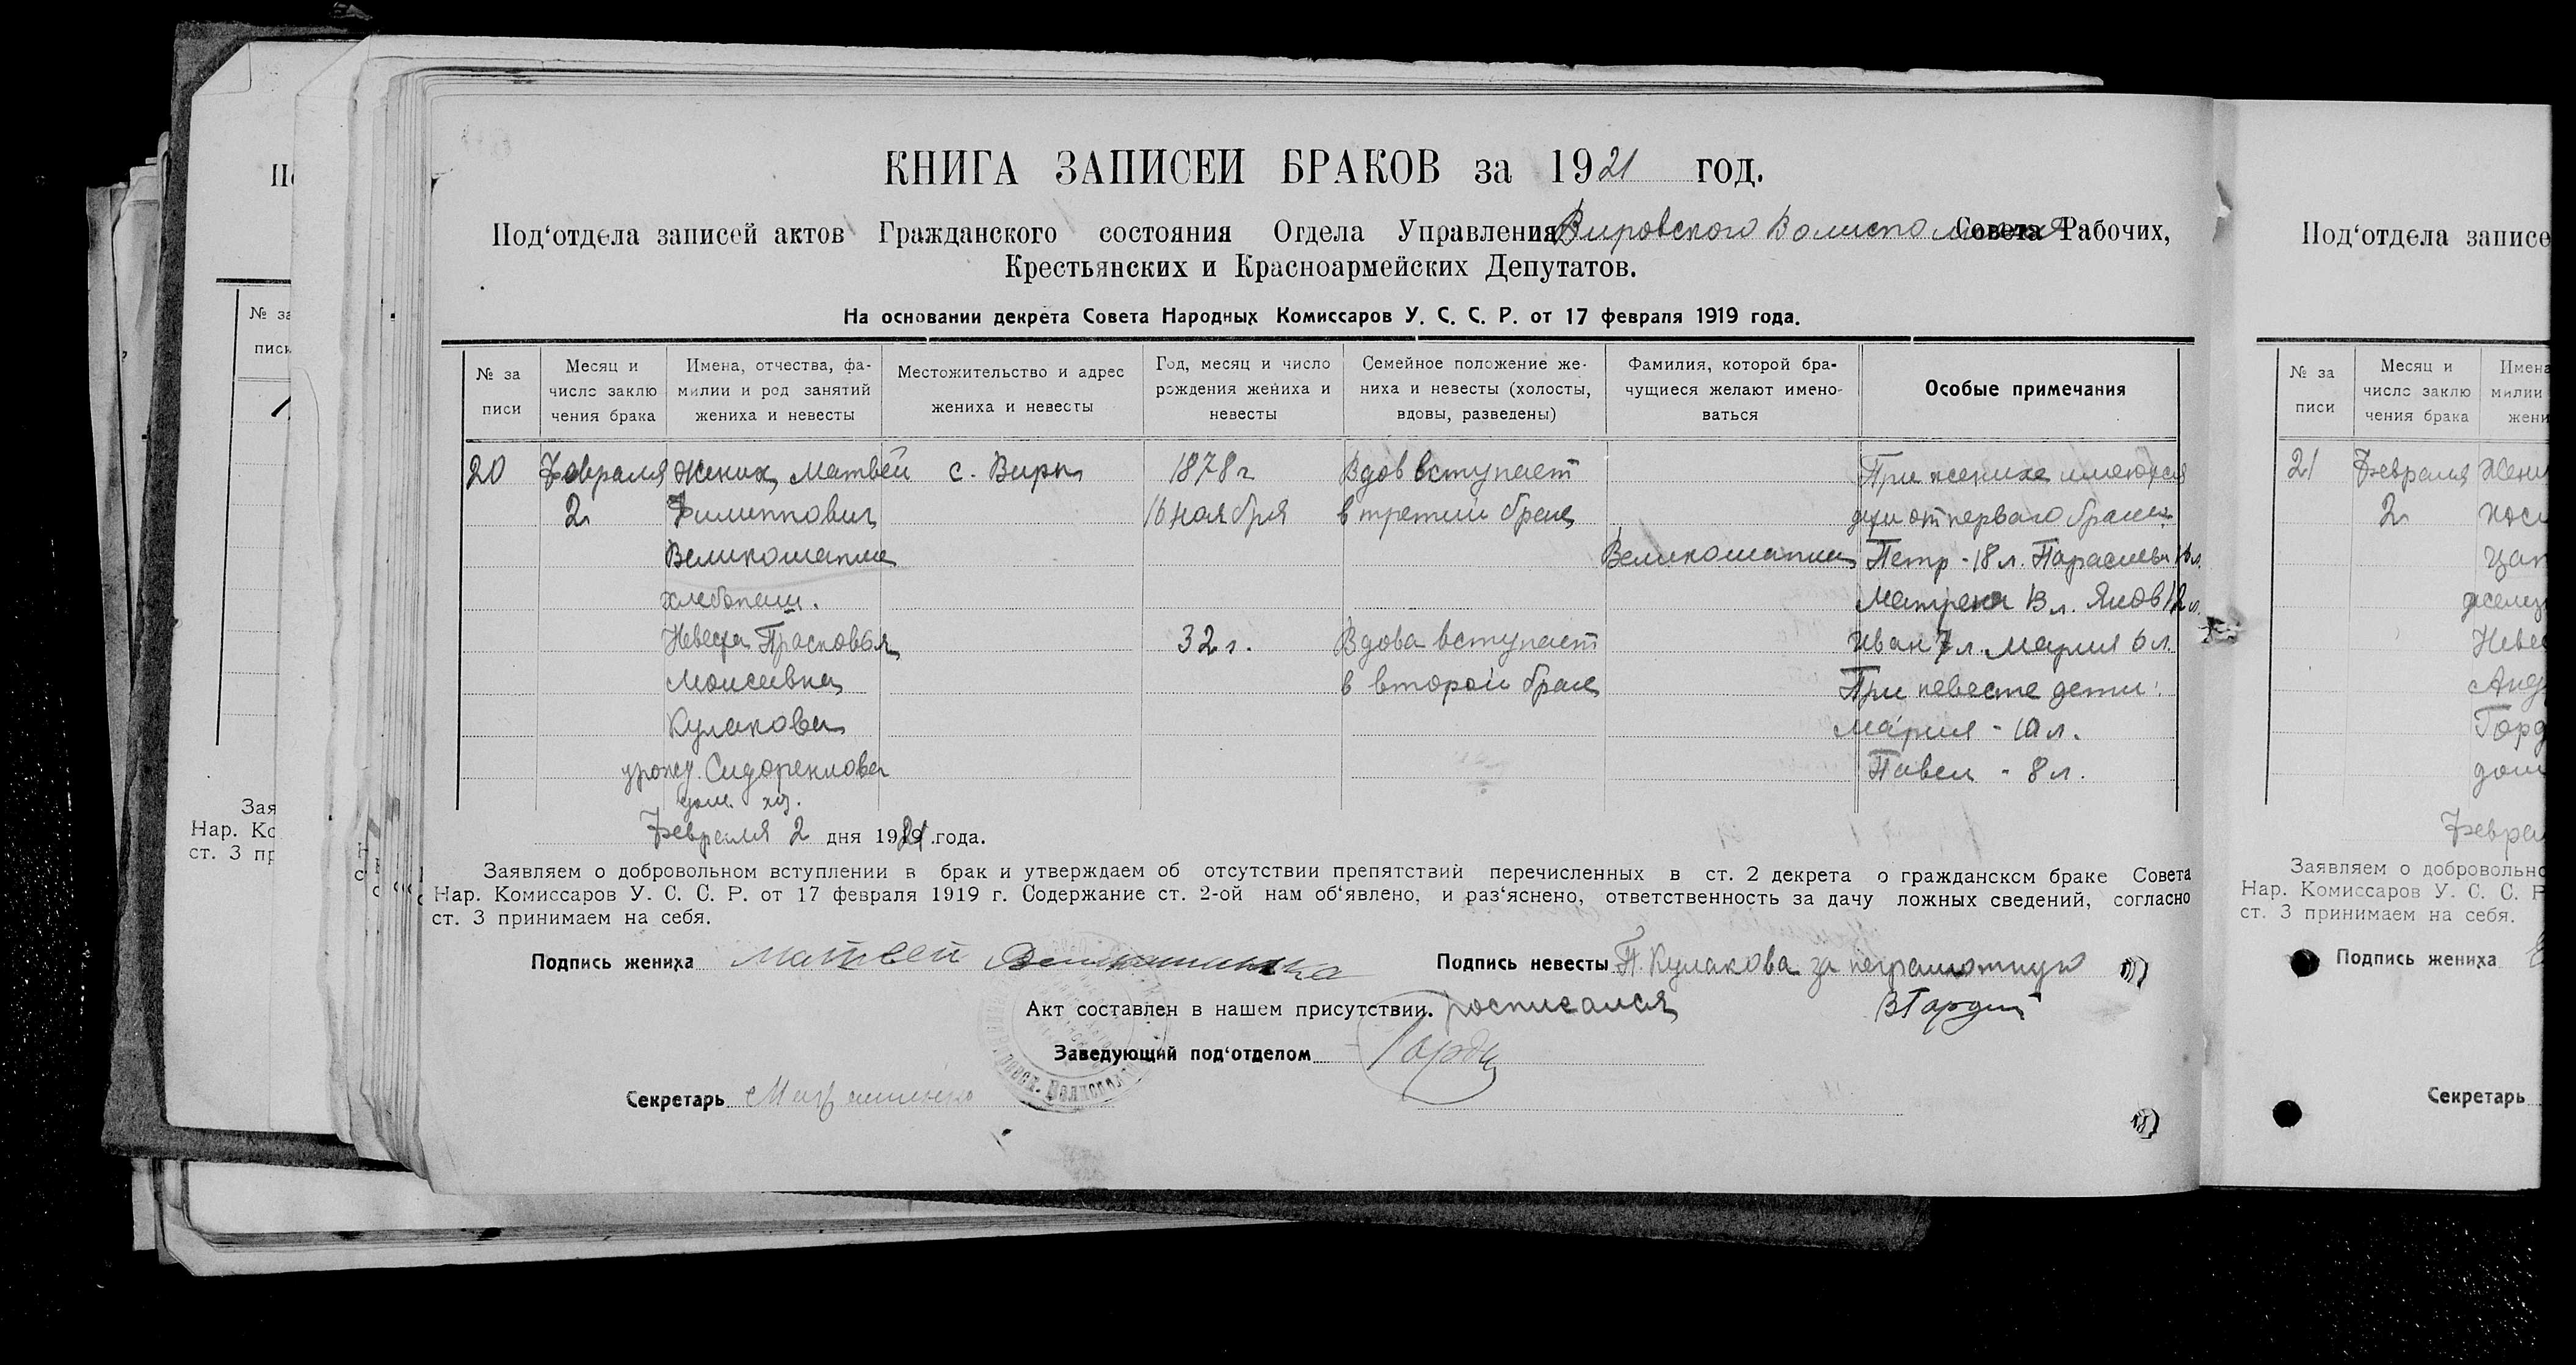 КНИГА ЗАПИСЕИ БРАКОВ за 1921 год.
Под‘отдела записей актов Гражданского состояния Отдела Управления Вировского Волисполкома Совета Рабочих,
Крестьянских и Красноармейских Депутатов.
На основании декрета Совета Народных Комиссаров У. С. С. Р. от 17 февраля 1919 года.
№ за писи
Месяц и число заклю чения брака
Имена, отчества, фа- милии и род занятий жениха и невесты
Местожительство и адрес жениха и невесты
Год, месяц и число рождения жениха и невесты
Семейное положение же- ниха и невесты (холосты, вдовы, разведены)
Фамилия, которой бра- чущиеся желают имено- ваться
Особые примечания
20 Февраля Жених Матвей с. Виры 1878 г Вдов вступает При женихе имеются
2 Филиппович 16 ноября в третий брак дети от перваго брака:
Великошапка Великошапка Петр - 18 л. Парасковья 16 л.
хлебопаш. Матрена 13 л. Яков 12 л.
Невеста Прасковья 32 г. Вдова вступает Иван 7 л. Мария 6 л.
Моисеевна в второй брак При невесте дети:
Кулакова Мария - 10 л.
урожд. Сидоренкова Павел - 8 л.
дом. хоз.
Февраля 2 дня 1921 года.
Заявляем о добровольном вступлении в брак и утверждаем об отсутствии препятствий перечисленных в ст. 2 декрета о гражданском браке Совета
Нар. Комиссаров У. С. С. Р. от 17 февраля 1919 г. Содержание ст. 2-ой нам об‘явлено, и раз‘яснено, ответственность за дачу ложных сведений, согласно
ст. 3 принимаем на себя.
Подпись жениха Матвей Великошапка Подпись невесты П. Кулакова за неграмотную
Акт составлен в нашем присутствии. росписался
Заведующий под‘отделом
Секретарь
Под‘отдела записе
№ за писи
Месяц и число заклю чения брака
Имена
милии
жени
21 Февраля Жени
2
Неве
Февра
Заявляем о добровольно
Нар. Комиссаров У. С. С. Р
ст. 3 принимаем на себя.
Подпись жениха
Секретарь
№ за
писи
Зая
Нар. Ко
ст. 3 пр